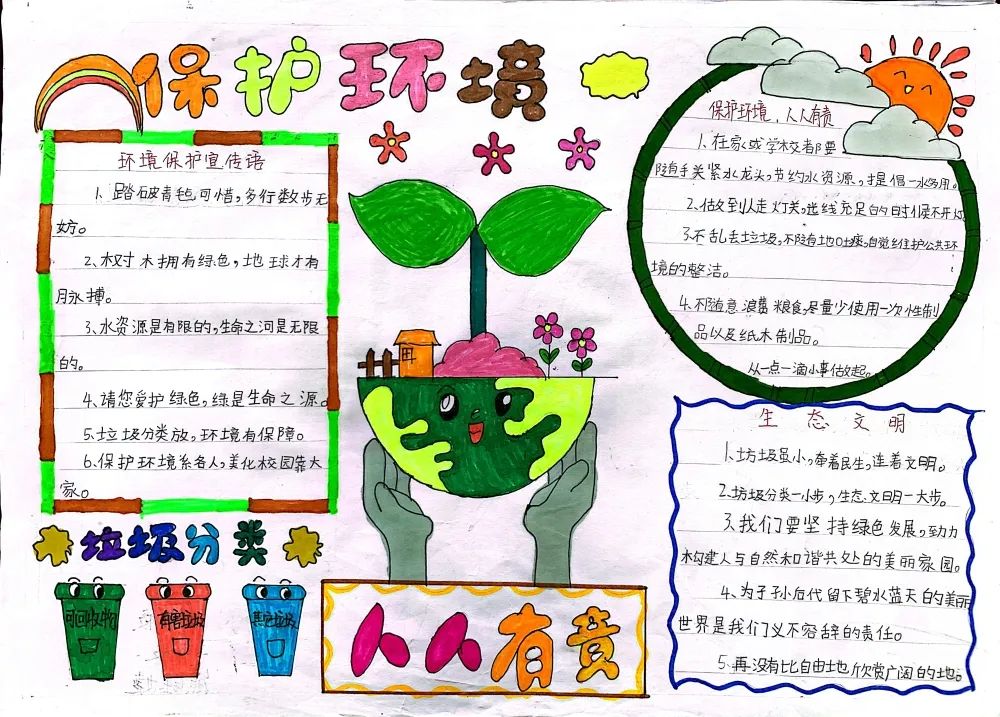 保护环境
环境保护宣传语
1、踏破青毡可惜,多行数步无
妨。
2、树木拥有绿色,地球才有
脉搏。
3、水资源是有限的,生命之河是无限
的。
4、请您爱护绿色,绿是生命之源。
5、垃圾分类放,环境有保障。
6、保护环境系各人,美化校园靠大
家。
垃圾分类
可回收物
有害垃圾
其它垃圾
人人有责
保护环境,人人有责
1、在家或学校都要
随手关紧水龙头,节约水资源,提倡一水多用。
2、做到人走灯关,光线充足的时候不开灯
3、不乱丢垃圾,不随地吐痰,自觉维护公共环
境的整洁。
4、不随意浪费粮食,尽量少使用一次性制
品以及纸木制品。
从一点一滴小事做起。
生态文明
1、垃圾虽小,牵着民生,连着文明。
2、垃圾分类一小步,生态文明一大步。
3、我们要坚持绿色发展,致力
构建人与自然和谐共处的美丽家园。
4、为子孙后代留下碧水蓝天的美丽
世界是我们义不容辞的责任。
5、再没有比自由地欣赏广阔的地。